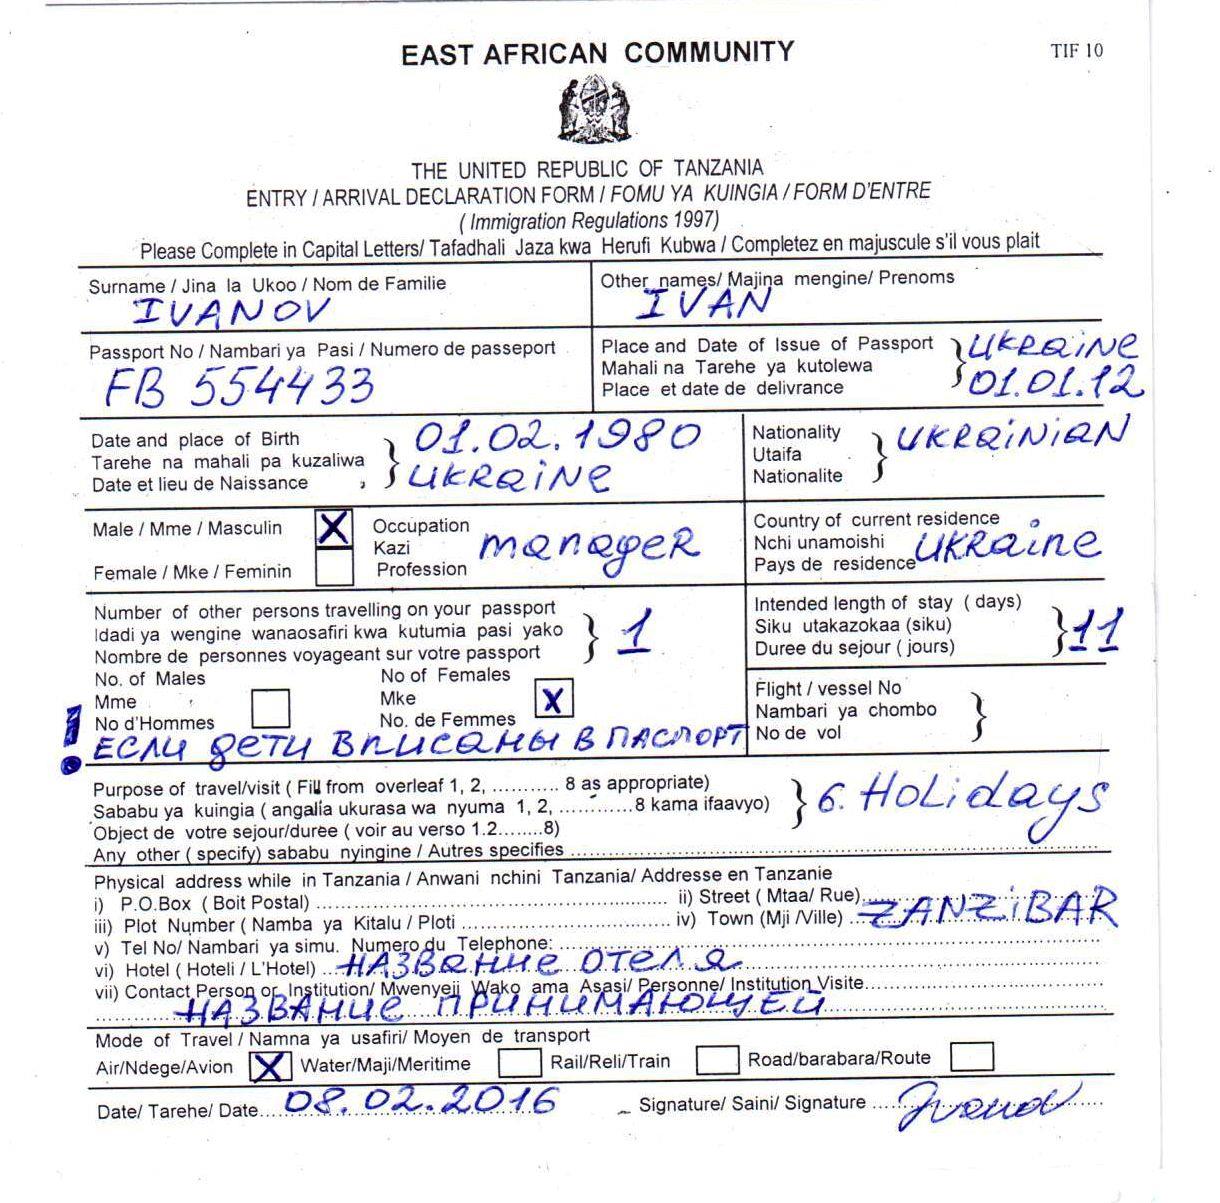 EAST AFRICAN COMMUNITY
TIF 10
THE UNITED REPUBLIC OF TANZANIA
ENTRY / ARRIVAL DECLARATION FORM / FOMU YA KUINGIA / FORM D'ENTRE
( Immigration Regulations 1997)
Please Complete in Capital Letters/ Tafadhali Jaza kwa Herufi Kubwa / Completez en majuscule s'il vous plait
Surname / Jina la Ukoo / Nom de Familie
IVANOV
Other names/ Majina mengine/ Prenoms
IVAN
Passport No / Nambari ya Pasi / Numero de passeport
FB 554433
Place and Date of Issue of Passport
Mahali na Tarehe ya kutolewa
Place et date de delivrance
UKRAiNE
01.01.12
Date and place of Birth
Tarehe na mahali pa kuzaliwa
Date et lieu de Naissance
01.02.1980
UKRAiNE
Nationality
Utaifa
Nationalite
UKRAiNiAN
Male / Mme / Masculin X
Female / Mke / Feminin
Occupation
Kazi
Profession
manageR
Country of current residence
Nchi unamoishi
Pays de residence
UKRaine
Number of other persons travelling on your passport
Idadi ya wengine wanaosafiri kwa kutumia pasi yako
Nombre de personnes voyageant sur votre passport
1
Intended length of stay ( days)
Siku utakazokaa (siku)
Duree du sejour ( jours)
11
No. of Males
Mme
No d'Hommes
No of Females
Mke
No. de Femmes
X
Flight / vessel No
Nambari ya chombo
No de vol
! ЕСЛИ дети ВПИСАНЫ В ПАСПОРТ
Purpose of travel/visit ( Fill from overleaf 1, 2, ........... 8 as appropriate)
Sababu ya kuingia ( angalia ukurasa wa nyuma 1, 2, ...........8 kama ifaavyo)
Object de votre sejour/durèe ( voir au verso 1.2.......8)
6. HoLidays
Any other ( specify) sababu nyingine / Autres specifies
Physical address while in Tanzania / Anwani nchini Tanzania/ Addresse en Tanzanie
i) P.O.Box ( Boit Postal) ii) Street ( Mtaa/ Rue)
iii) Plot Number ( Namba ya Kitalu / Ploti iv) Town (Mji /Ville) ZANZiBAR
v) Tel No/ Nambari ya simu. Numero du Telephone:
vi) Hotel ( Hoteli / L'Hotel) НАЗВАНИЕ ОТЕЛЯ
vii) Contact Person or Institution/ Mwenyeji Wako ama Asasi/ Personne/ Institution Visite
НАЗВАНИЕ ПРИНИМАЮЩЕЙ
Mode of Travel / Namna ya usafiri/ Moyen de transport
Air/Ndege/Avion X Water/Maji/Meritime Rail/Reli/Train Road/barabara/Route
Date/ Tarehe/ Date 08.02.2016 Signature/ Saini/ Signature